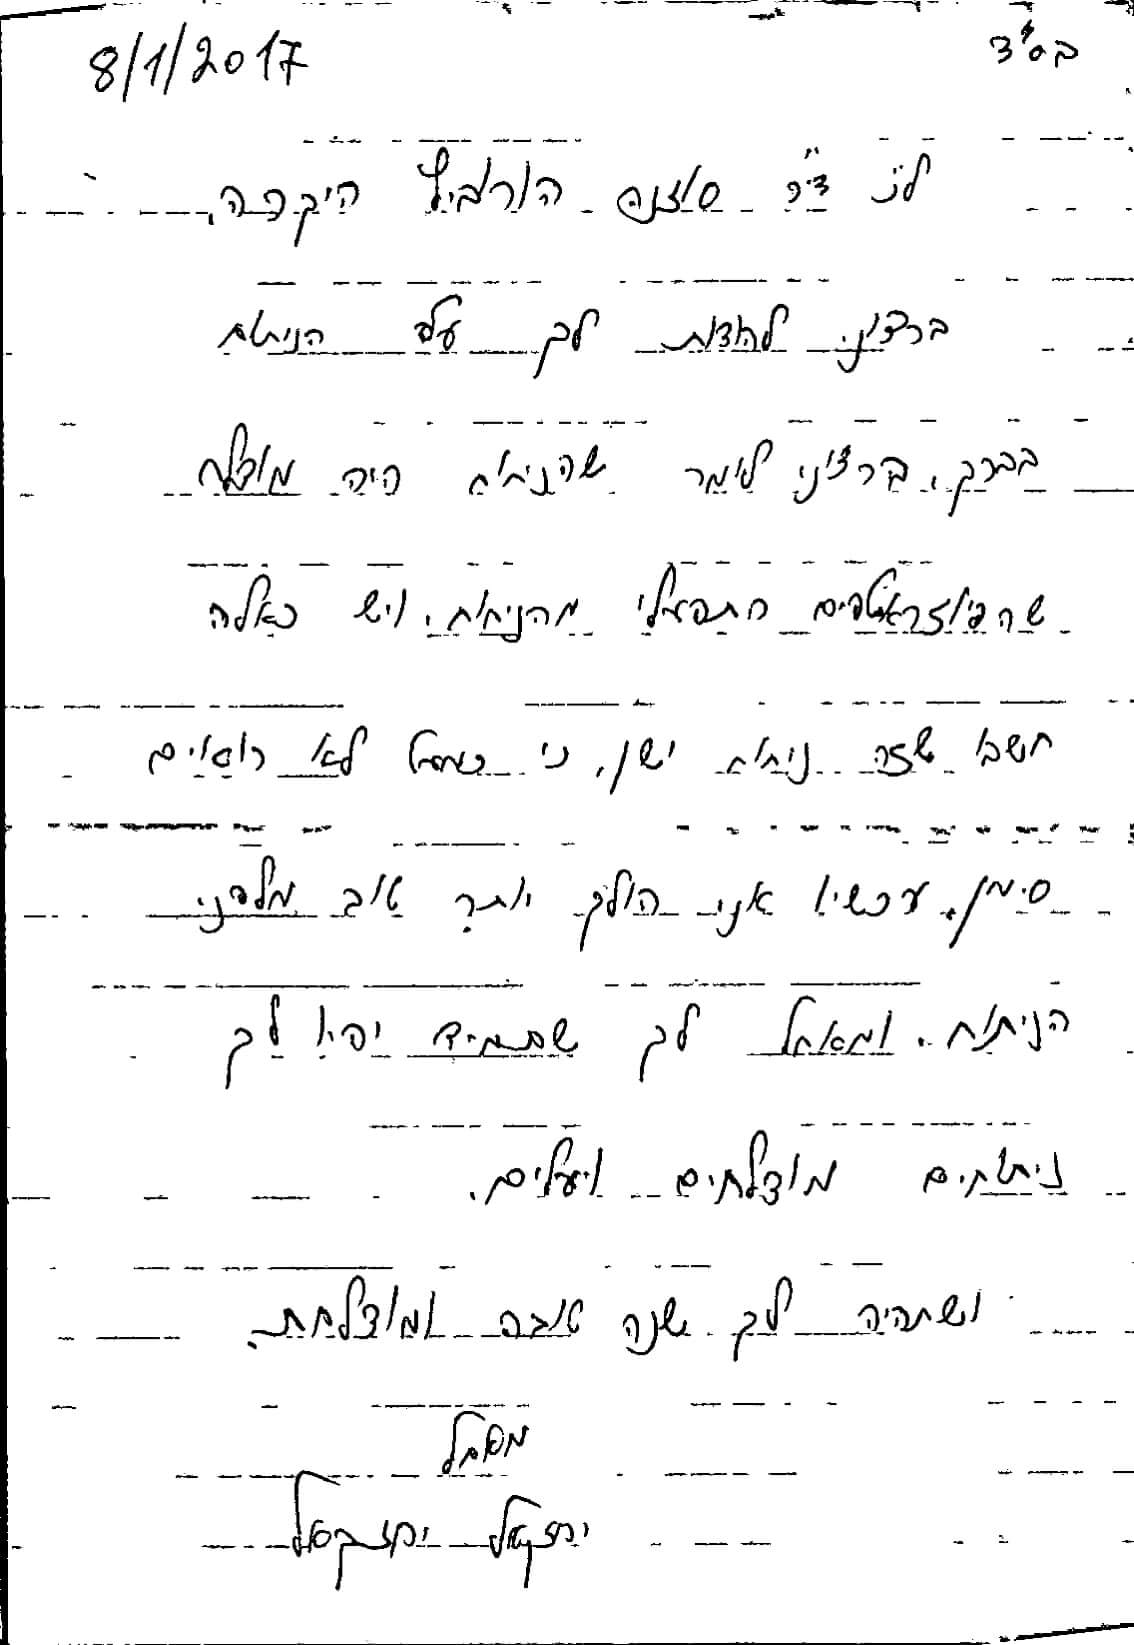 בס"ד
8/1/2017
לגב' ד"ר סוזנה הורוביץ היקרה,
ברצוני להודות לך על הניתוח
בברך, ברצוני לומר שהניתוח היה מוצלח
שהפיזוטרפיסטים התפעלו מהניתוח, ויש כאלה
חשבו שזה ניתוח ישן, כי כמעט לא רואים
סימן, עכשיו אני הולך יותר טוב מלפני
הניתוח. ומאחל לך שתמיד יהיו לך
ניתוחים מוצלחים ויעילים.
ושתהיה לך שנה טובה ומוצלחת.
יחזקאל יחזקאל